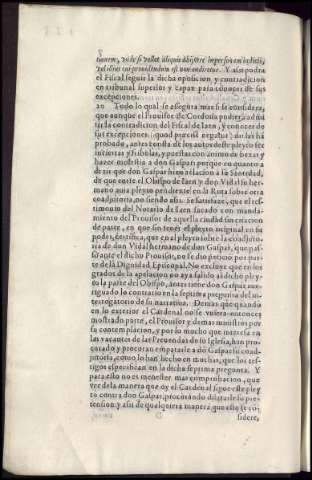 tionem, vt si vellet aliquis
vel illius cui præiudicatur est non audiretur. Y assi podra
el Fiscal seguir la dicha oposicion, y contradicion
en tribunal superior y capaz para conocer de sus
excepciones.
20 Todo lo qual se assegura mas si se considera,
que aunque el Prouisor de Cordoua pudiera admi
tir la contradicion del Fiscal de Iaen, y conocer de
sus excepciones (quod precisè negatur) no las ha
probado, antes consta de los autos deste pleyto ser
inciertas y fribolas, y puestas con animo de bexar y
hazer molestia a don Gaspar: porque en quanto a
dezir que don Gaspar hizo relacion a su Santidad,
de que entre el Obispo de Iaen y don Vidal su her-
mano auia pleyto pendiente en la Rota sobre otra
coadjutoria, no siendo assi. Se satisfaze, que el tes-
timonio del Notario de Iaen sacado con manda-
miento del Prouisor de aquella ciudad sin citacion
de parte, en que sin tener el pleyto original en su
poder, certifica, que en el pleyto sobre la coadjuto-
ria de don Vidal hermano de don Gaspar, que pas-
sò ante el dicho Prouisor, no se dio peticion por par-
te de la Dignidad Episcopal. No excluye que en los
grados de la apelacion no aya salido al dicho pley
to la parte del Obispo, antes tiene don Gaspar aue-
riguado lo contrario en la septima pregunta del in-
terrogatorio de su narratiua. Demas que quando
en lo exterior el Cardenal no se vuiera entonces
mostrado parte, el Prouisor y demas ministros por
su contemplacion, y por lo mucho que interesa en
las vacantes de las Preuendas de su Iglesia, han pro-
curado y procuran empatarle a don Gaspar su coad-
jutoria, como lo han hecho en muchas, que los tes-
tigos especifican en la dicha septima pregunta. Y
para esto no es menester mas comprobacion, que
ver de la manera que oy el Cardenal sigue este pley
to contra don Gaspar, procurando dilatarle su pre-
tension: y assi de qualquiera manera que esto se co-
sidere,